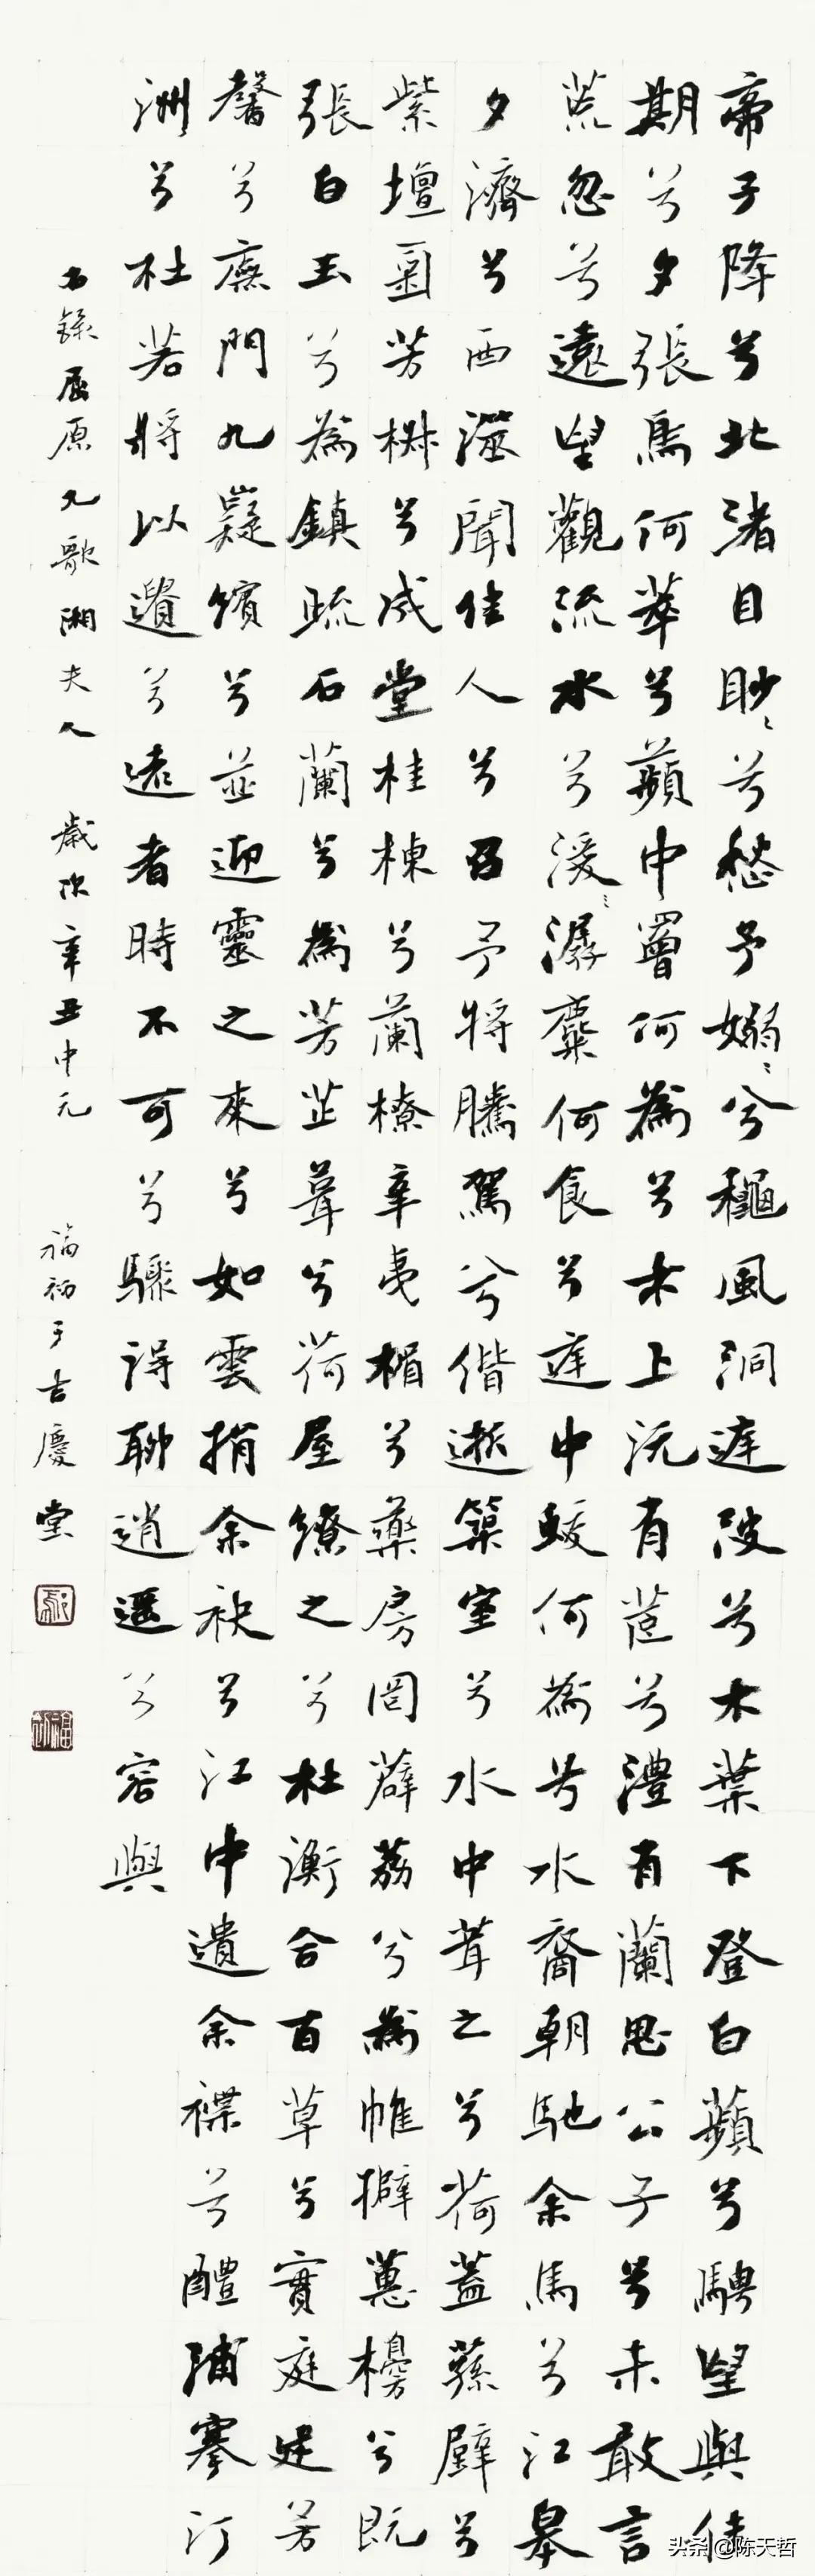 帝子降兮北渚目眇〻兮愁予嫋〻兮穐風洞庭波兮木葉下登白蘋兮騁望與佳
期兮夕張鳥何萃兮蘋中罾何為兮木上沅有茝兮澧有蘭思公子兮未敢言
荒忽兮遠望觀流水兮湲〻潺麋何食兮庭中蛟何為兮水裔朝馳余馬兮江皋
夕濟兮西澨聞佳人兮召予將騰駕兮偕逝築室兮水中葺之兮荷蓋蓀壁兮
紫壇匊芳椒兮成堂桂棟兮蘭橑辛夷楣兮藥房罔薜荔兮為帷擗蕙櫋兮既
張白玉兮為鎮疏石蘭兮為芳芷葺兮荷屋繚之兮杜衡合百草兮實庭建芳
馨兮廡門九嶷繽兮並迎靈之來兮如雲捐余袂兮江中遺余褋兮醴浦搴汀
洲兮杜若將以遺兮遠者時不可兮驟得聊逍遙兮容與
右錄屈原九歌湘夫人 歲次辛丑中元 福初于吉慶堂
头条 @陈天哲